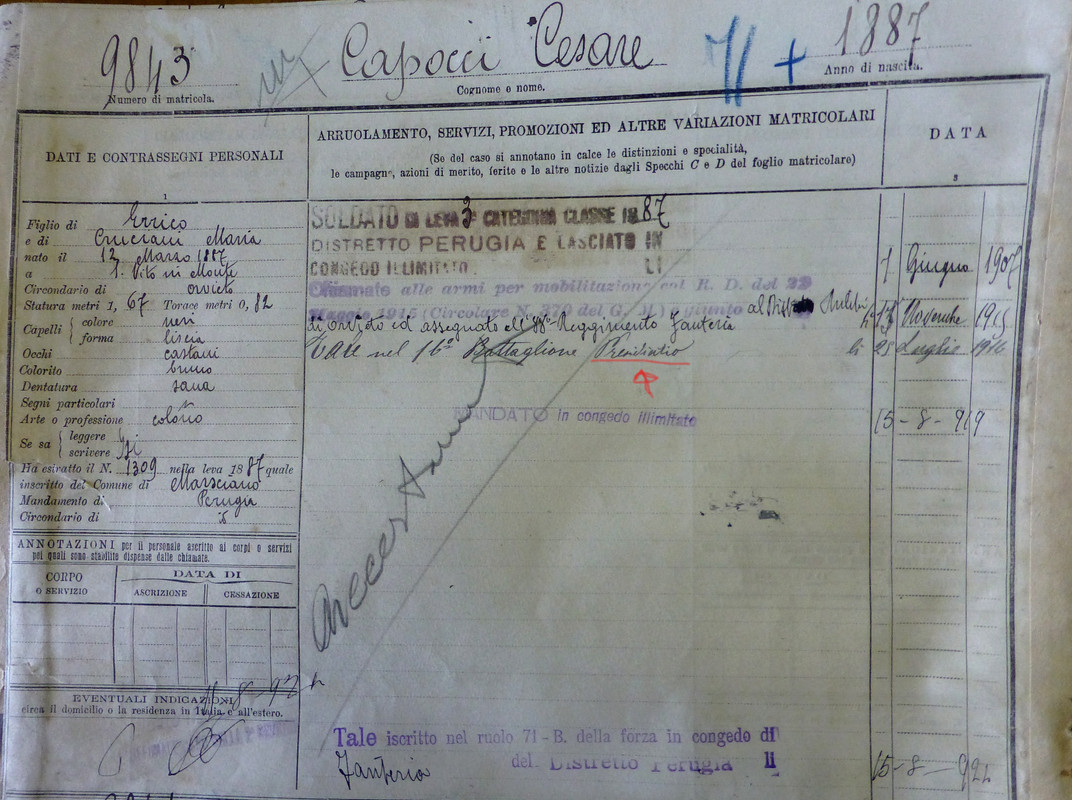 9843
Numero di matricola.
Capocci Cesare
Cognome e nome.
71 +
1887
Anno di nascita.
DATI E CONTRASSEGNI PERSONALI
1
Figlio di Errico
e di Cruciani Maria
nato il 12 Marzo 1887
a S. Vito in Monte
Circondario di Orvieto
Statura metri 1, 67 Torace metri 0, 82
Capelli colore neri
forma liscia
Occhi castani
Colorito bruno
Dentatura sana
Segni particolari
Arte o professione colono
Se sa leggere
scrivere Si
Ha estratto il N. 1309 nella leva 1887 quale
inscritto del Comune di Marsciano
Mandamento di Perugia
Circondario di
ANNOTAZIONI per il personale ascritto ai corpi o servizi
pei quali sono stabilite dispense dalle chiamate.
CORPO
O SERVIZIO
DATA DI
ASCRIZIONE
CESSAZIONE
EVENTUALI INDICAZIONI
circa il domicilio o la residenza in Italia e all'estero.
ARRUOLAMENTO, SERVIZI, PROMOZIONI ED ALTRE VARIAZIONI MATRICOLARI
(Se del caso si annotano in calce le distinzioni e specialità,
le campagne, azioni di merito, ferite e le altre notizie dagli Specchi C e D del foglio matricolare)
SOLDATO DI LEVA 3ª CATEGORIA CLASSE 1887
DISTRETTO PERUGIA E LASCIATO IN
CONGEDO ILLIMITATO. LI
Chiamato alle armi per mobilitazione col R. D. del 22
Maggio 1915 (Circolare N. 370 del G. M.) e giunto al
di Orvieto ed assegnato all' 88º Reggimento Fanteria
Tale nel 16º Battaglione Presidiario
MANDATO in congedo illimitato
Tale iscritto nel ruolo 71-B. della forza in congedo di
Fanteria del Distretto Perugia li
DATA
3
1 Giugno 1907
Novembre 1915
li 25 Luglio 1916
15-8-919
15-8-921